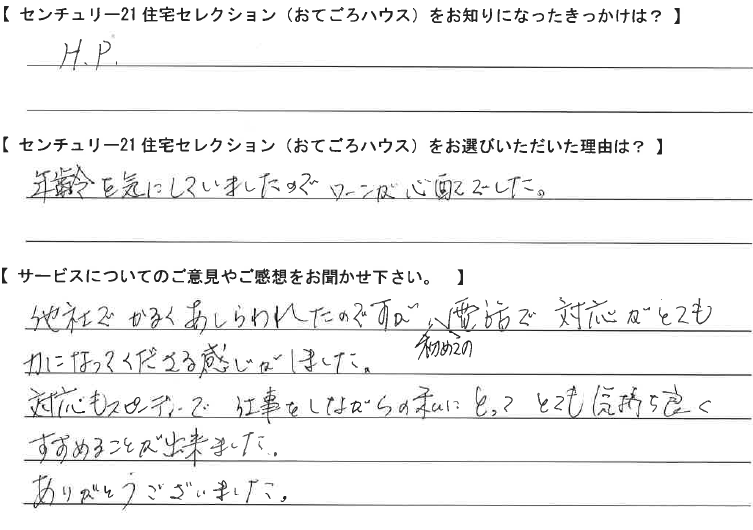 【 センチュリー21 住宅セレクション（おてごろハウス）をお知りになったきっかけは？ 】
H.P.
【 センチュリー21 住宅セレクション（おてごろハウス）をお選びいただいた理由は？ 】
年齢を気にしていましたので ローンが心配でした。
【 サービスについてのご意見やご感想をお聞かせ下さい。 】
他社で かるく あしらわれたのですが、初めての電話で 対応がとても
力になってくださる感じがしました。
対応もスピーディーで 仕事をしながらの私にとって とても気持ち良く
すすめることが出来ました。
ありがとうございました。